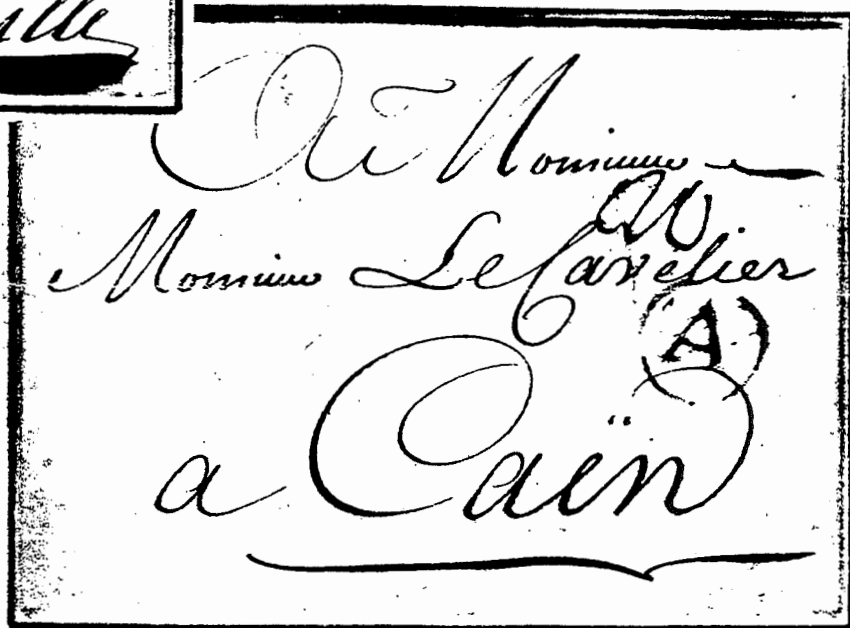 ille
A Monsieur
Monsieur Le Cavelier
A
a Caën